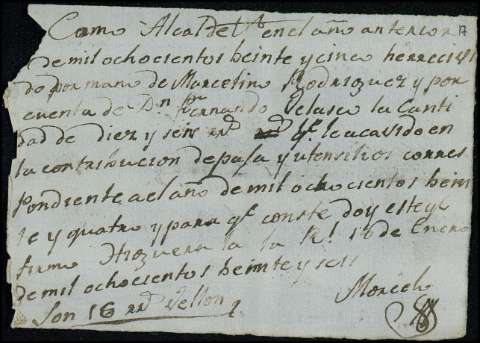 Como Alcal de Sto en el año anterior
de mil ochocientos beinte y cinco he rrecivi
do por mano de Marcelino Rodriguez y por
cuenta de Dn Fernando Velasco la Canti
dad de diez y seis rrs qe le a cavido en
la contribucion de paja y utensilios corres
pondiente a el año de mil ochocientos bein
te y quatro y para qe conste doy este y
firmo la Rl 18 de Enero
de mil ochocientos beinte y seis
Son 16 rrs vellon
Marcelo